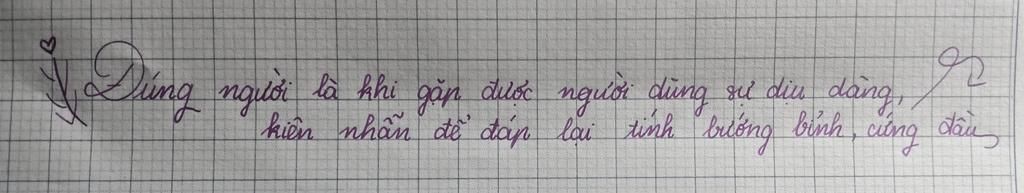 Đúng người là khi gặp được người dùng sự dịu dàng,
kiên nhẫn để đáp lại tính bướng bỉnh, cứng đầu